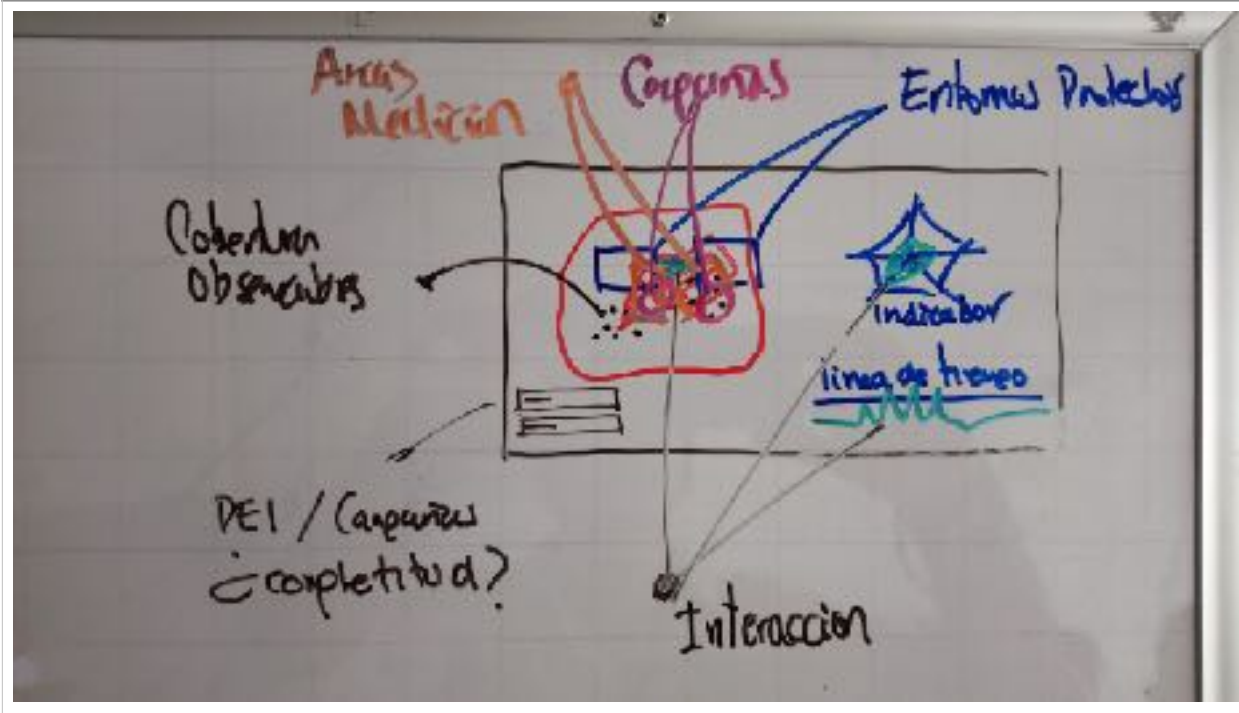 Areas
Medición
Campañas
Entornos Protector
Cobertura
Observadores
indicador
linea de tiempo
DEI / Campañas
¿completitud?
Interaccion